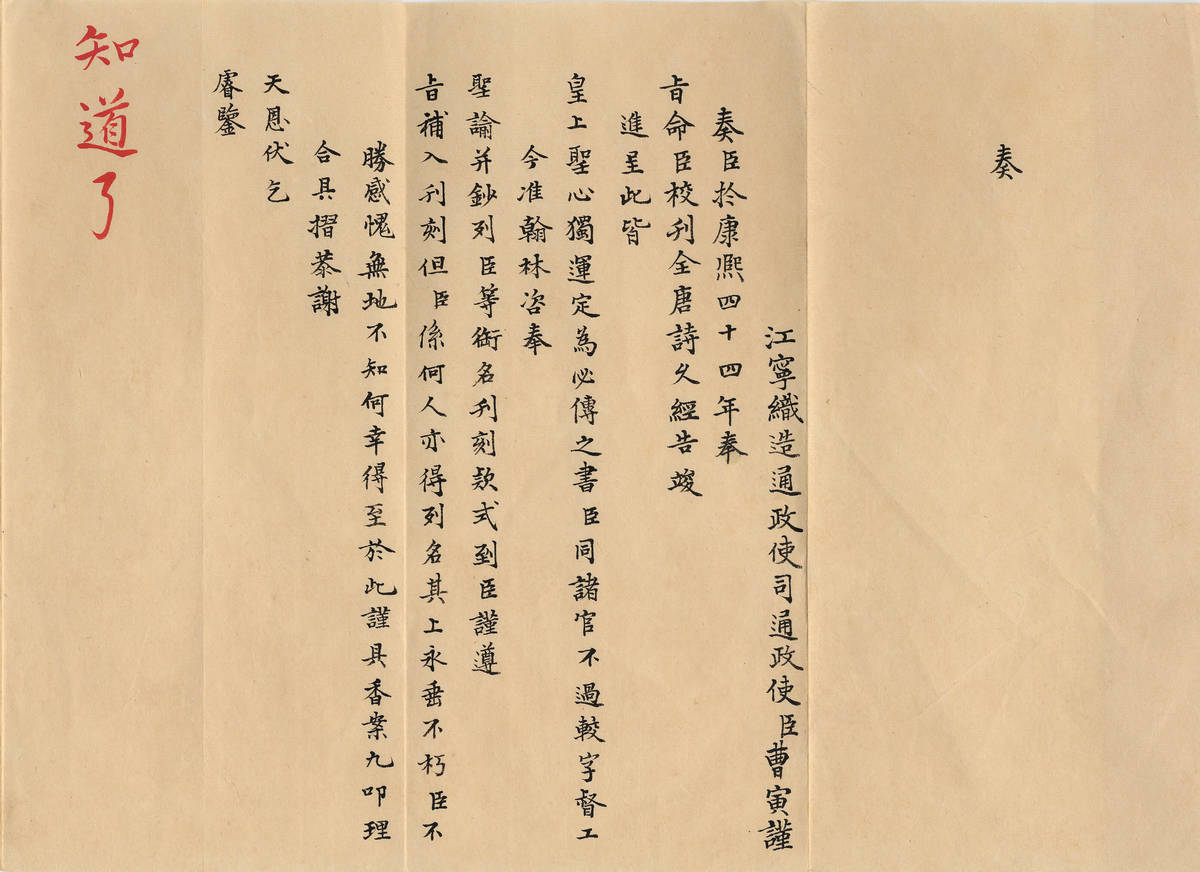 奏
江寧織造通政使司通政使臣曹寅謹
奏臣於康熙四十四年奉
旨命臣校刋全唐詩久經告竣
進呈此皆
皇上聖心獨運定為必傳之書臣同諸官不過較字督工
今准翰林咨奉
聖諭并鈔列臣等銜名刋刻款式到臣謹遵
旨補入刋刻但臣係何人亦得列名其上永垂不朽臣不
勝感愧無地不知何幸得至於此謹具香案九叩理
合具摺恭謝
天恩伏乞
睿鑒
知道了